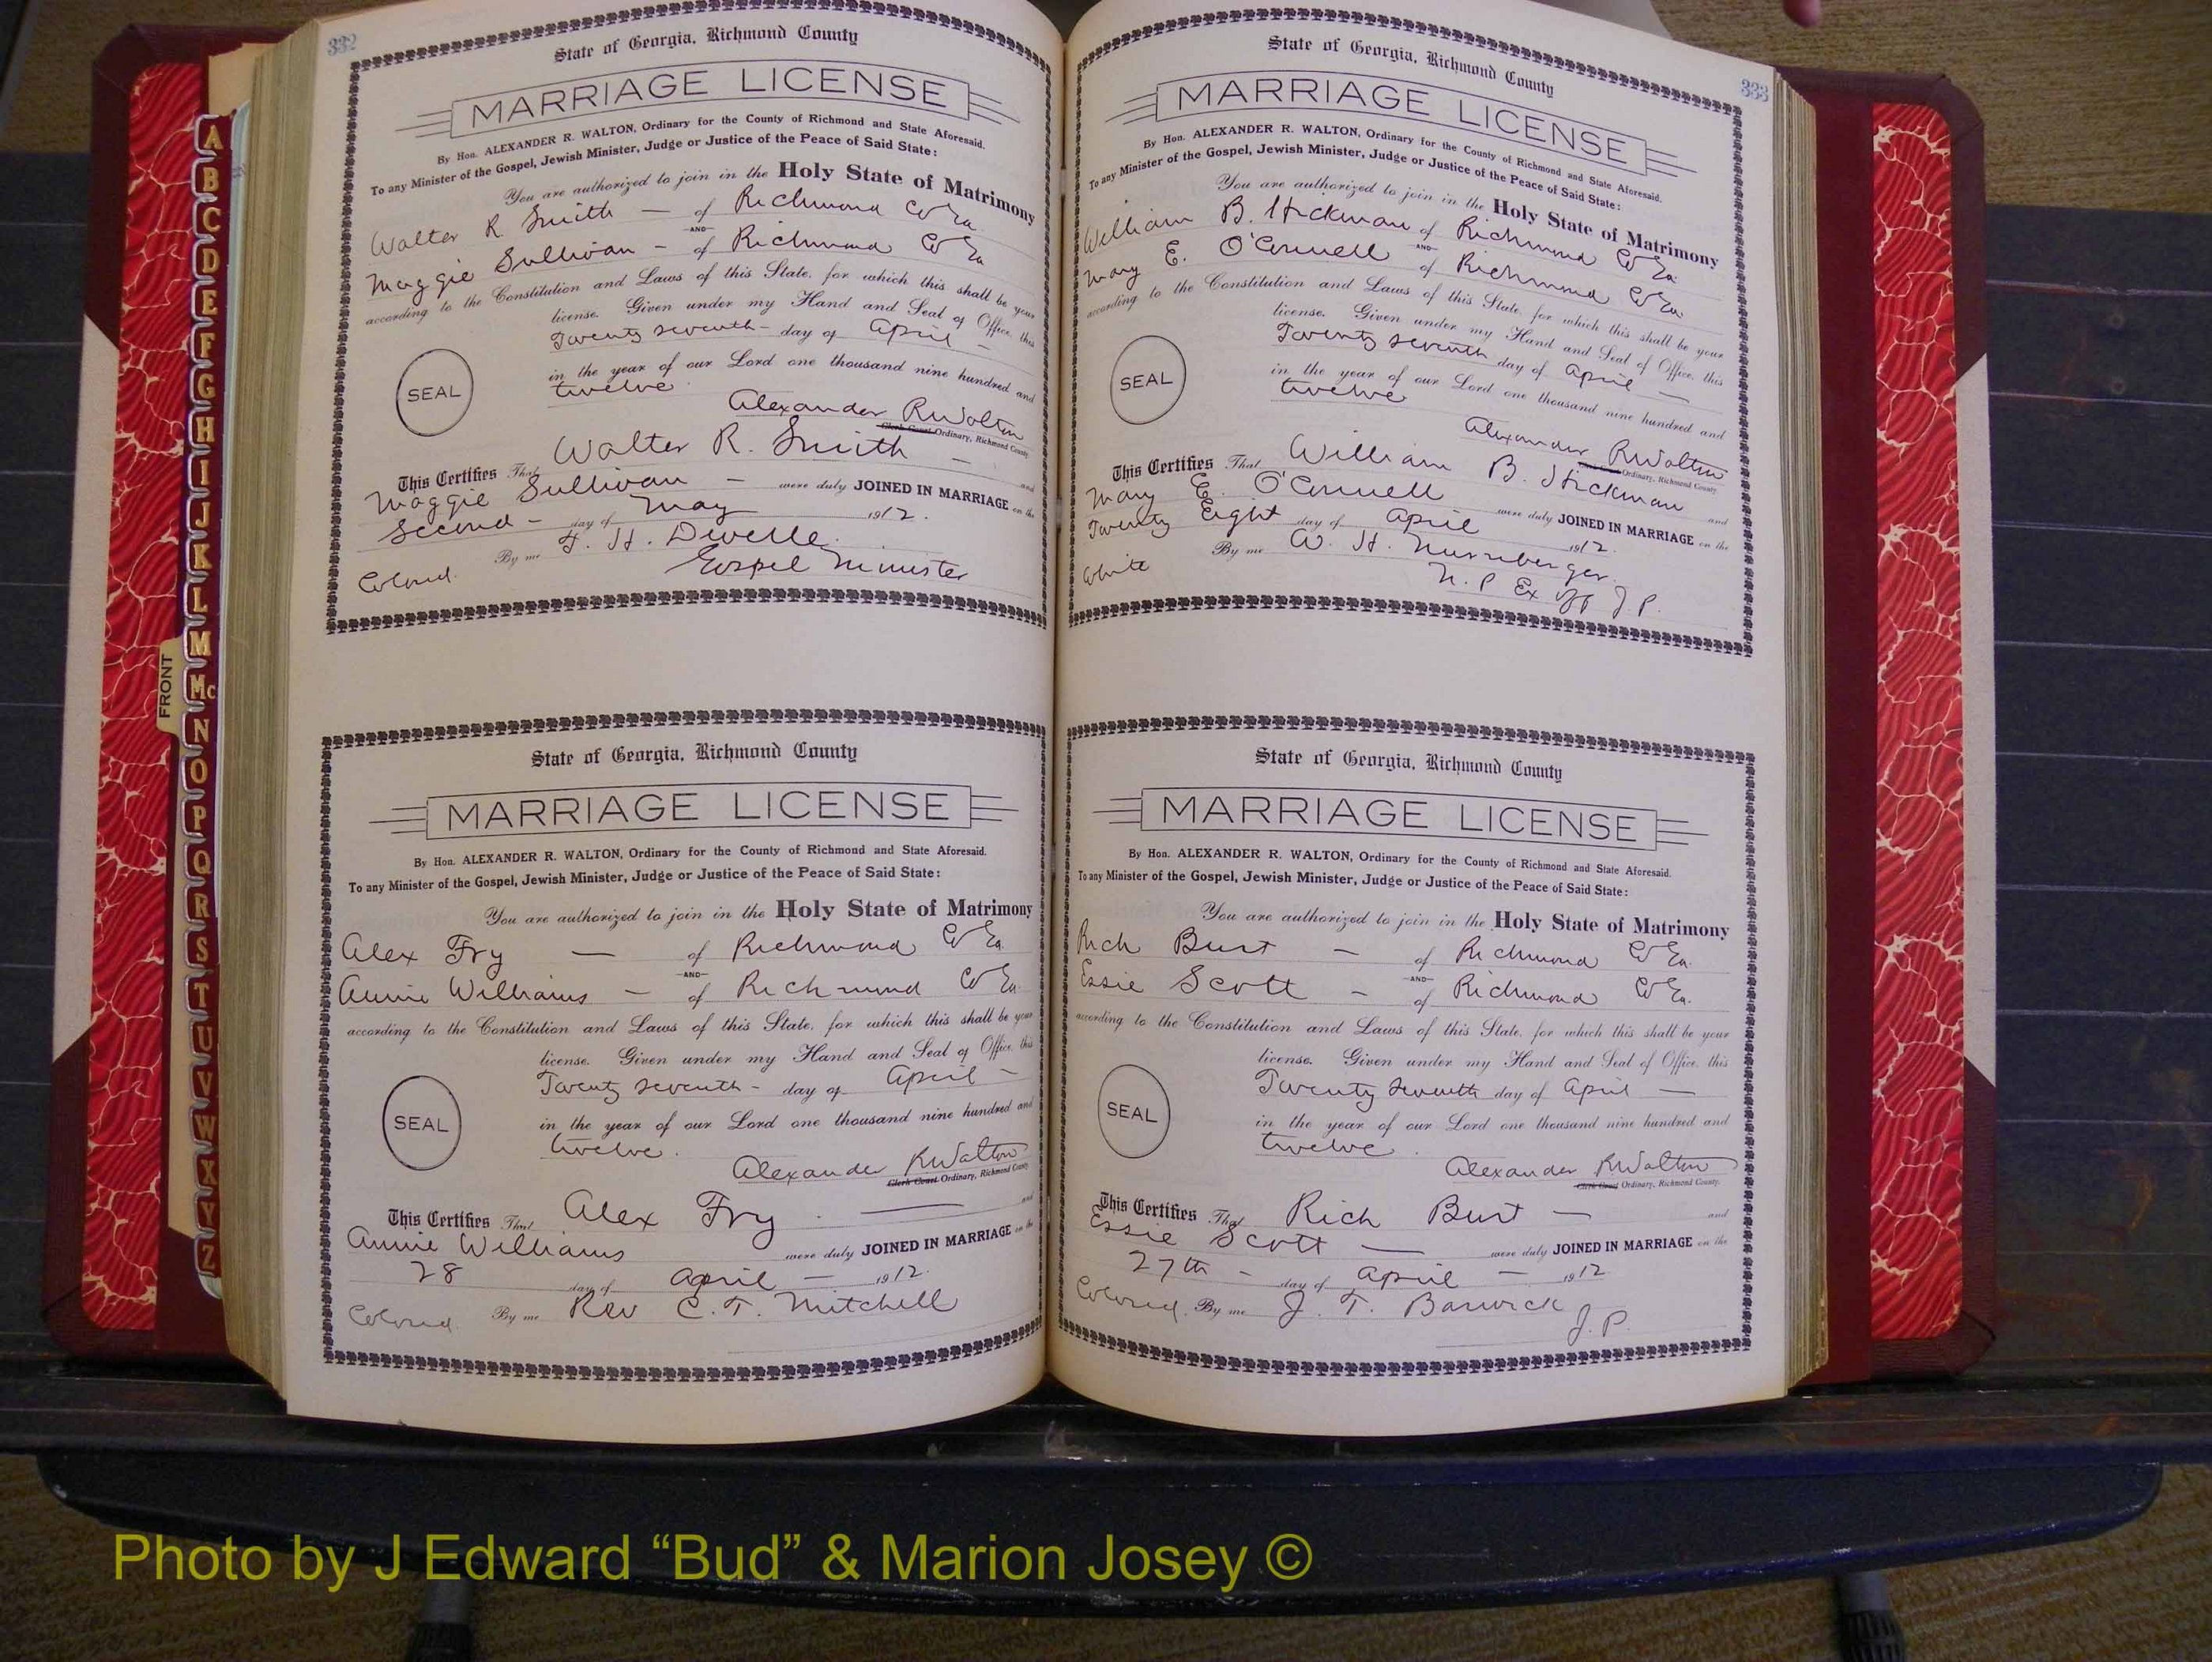 332
State of Georgia, Richmond County
MARRIAGE LICENSE
By Hon. ALEXANDER R. WALTON, Ordinary for the County of Richmond and State Aforesaid.
To any Minister of the Gospel, Jewish Minister, Judge or Justice of the Peace of Said State:
You are authorized to join in the Holy State of Matrimony
Walter R Smith — of Richmond Co Ga.
AND
Maggie Sullivan — of Richmond Co Ga
according to the Constitution and Laws of this State, for which this shall be your
license. Given under my Hand and Seal of Office, this
Twenty seventh — day of April —
in the year of our Lord one thousand nine hundred and
twelve
SEAL
Alexander R Walton
Clerk Court Ordinary, Richmond County.
This Certifies That Walter R. Smith — and
Maggie Sullivan — were duly JOINED IN MARRIAGE on the
Second — day of May 1912.
By me F. H. Dwelle.
Colored. Gospel Minister
State of Georgia, Richmond County
MARRIAGE LICENSE
By Hon. ALEXANDER R. WALTON, Ordinary for the County of Richmond and State Aforesaid.
To any Minister of the Gospel, Jewish Minister, Judge or Justice of the Peace of Said State:
You are authorized to join in the Holy State of Matrimony
Alex Fry — of Richmond Co Ga.
AND
Annie Williams — of Richmond Co Ga.
according to the Constitution and Laws of this State, for which this shall be your
license. Given under my Hand and Seal of Office, this
Twenty seventh — day of April —
in the year of our Lord one thousand nine hundred and
twelve.
SEAL
Alexander R Walton
Clerk Court Ordinary, Richmond County
This Certifies That Alex Fry. — and
Annie Williams were duly JOINED IN MARRIAGE on the
28 day of April — 1912.
Colored. By me Rev C. T. Mitchell
333
State of Georgia, Richmond County
MARRIAGE LICENSE
By Hon. ALEXANDER R. WALTON, Ordinary for the County of Richmond and State Aforesaid.
To any Minister of the Gospel, Jewish Minister, Judge or Justice of the Peace of Said State:
You are authorized to join in the Holy State of Matrimony
William B. Hickman of Richmond Co Ga.
AND
Mary E. O'Connell of Richmond Co Ga.
according to the Constitution and Laws of this State, for which this shall be your
license. Given under my Hand and Seal of Office, this
Twenty seventh day of April —
in the year of our Lord one thousand nine hundred and
twelve
SEAL
Alexander R Walton
Clerk Court Ordinary, Richmond County
This Certifies That William B. Hickman and
Mary E. O'Connell were duly JOINED IN MARRIAGE on the
Twenty Eight day of April 1912.
By me W. H. Nurnberger.
White N. P Ex Off J. P.
State of Georgia, Richmond County
MARRIAGE LICENSE
By Hon. ALEXANDER R. WALTON, Ordinary for the County of Richmond and State Aforesaid.
To any Minister of the Gospel, Jewish Minister, Judge or Justice of the Peace of Said State:
You are authorized to join in the Holy State of Matrimony
Rich Burt — of Richmond Co Ga.
AND
Essie Scott — of Richmond Co Ga.
according to the Constitution and Laws of this State, for which this shall be your
license. Given under my Hand and Seal of Office, this
Twenty Seventh day of April —
in the year of our Lord one thousand nine hundred and
twelve.
SEAL
Alexander R Walton
Clerk Court Ordinary, Richmond County.
This Certifies That Rich Burt — and
Essie Scott — were duly JOINED IN MARRIAGE on the
27th — day of April — 1912
Colored. By me J. T. Barwick
J. P.
FRONT
A
B
C
D
E
F
G
H
I
J
K
L
M
Mc
N
O
P
Q
R
S
T
U
V
W
X
Y
Z
Photo by J Edward “Bud” & Marion Josey ©